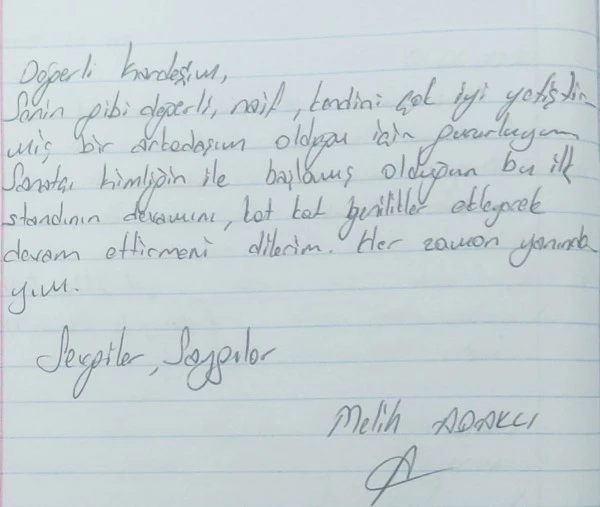 Değerli kardeşim,
Senin gibi değerli, naif, kendini çok iyi yetiştir
miş bir arkadaşım olduğu için gururluyum
Sanatçı kimliğin ile başlamış olduğun bu ilk
standının devamını, kat kat yenilikler ekleyerek
devam ettirmeni dilerim. Her zaman yanında
yım.
Sevgiler, Saygılar
Melih ADAKCI